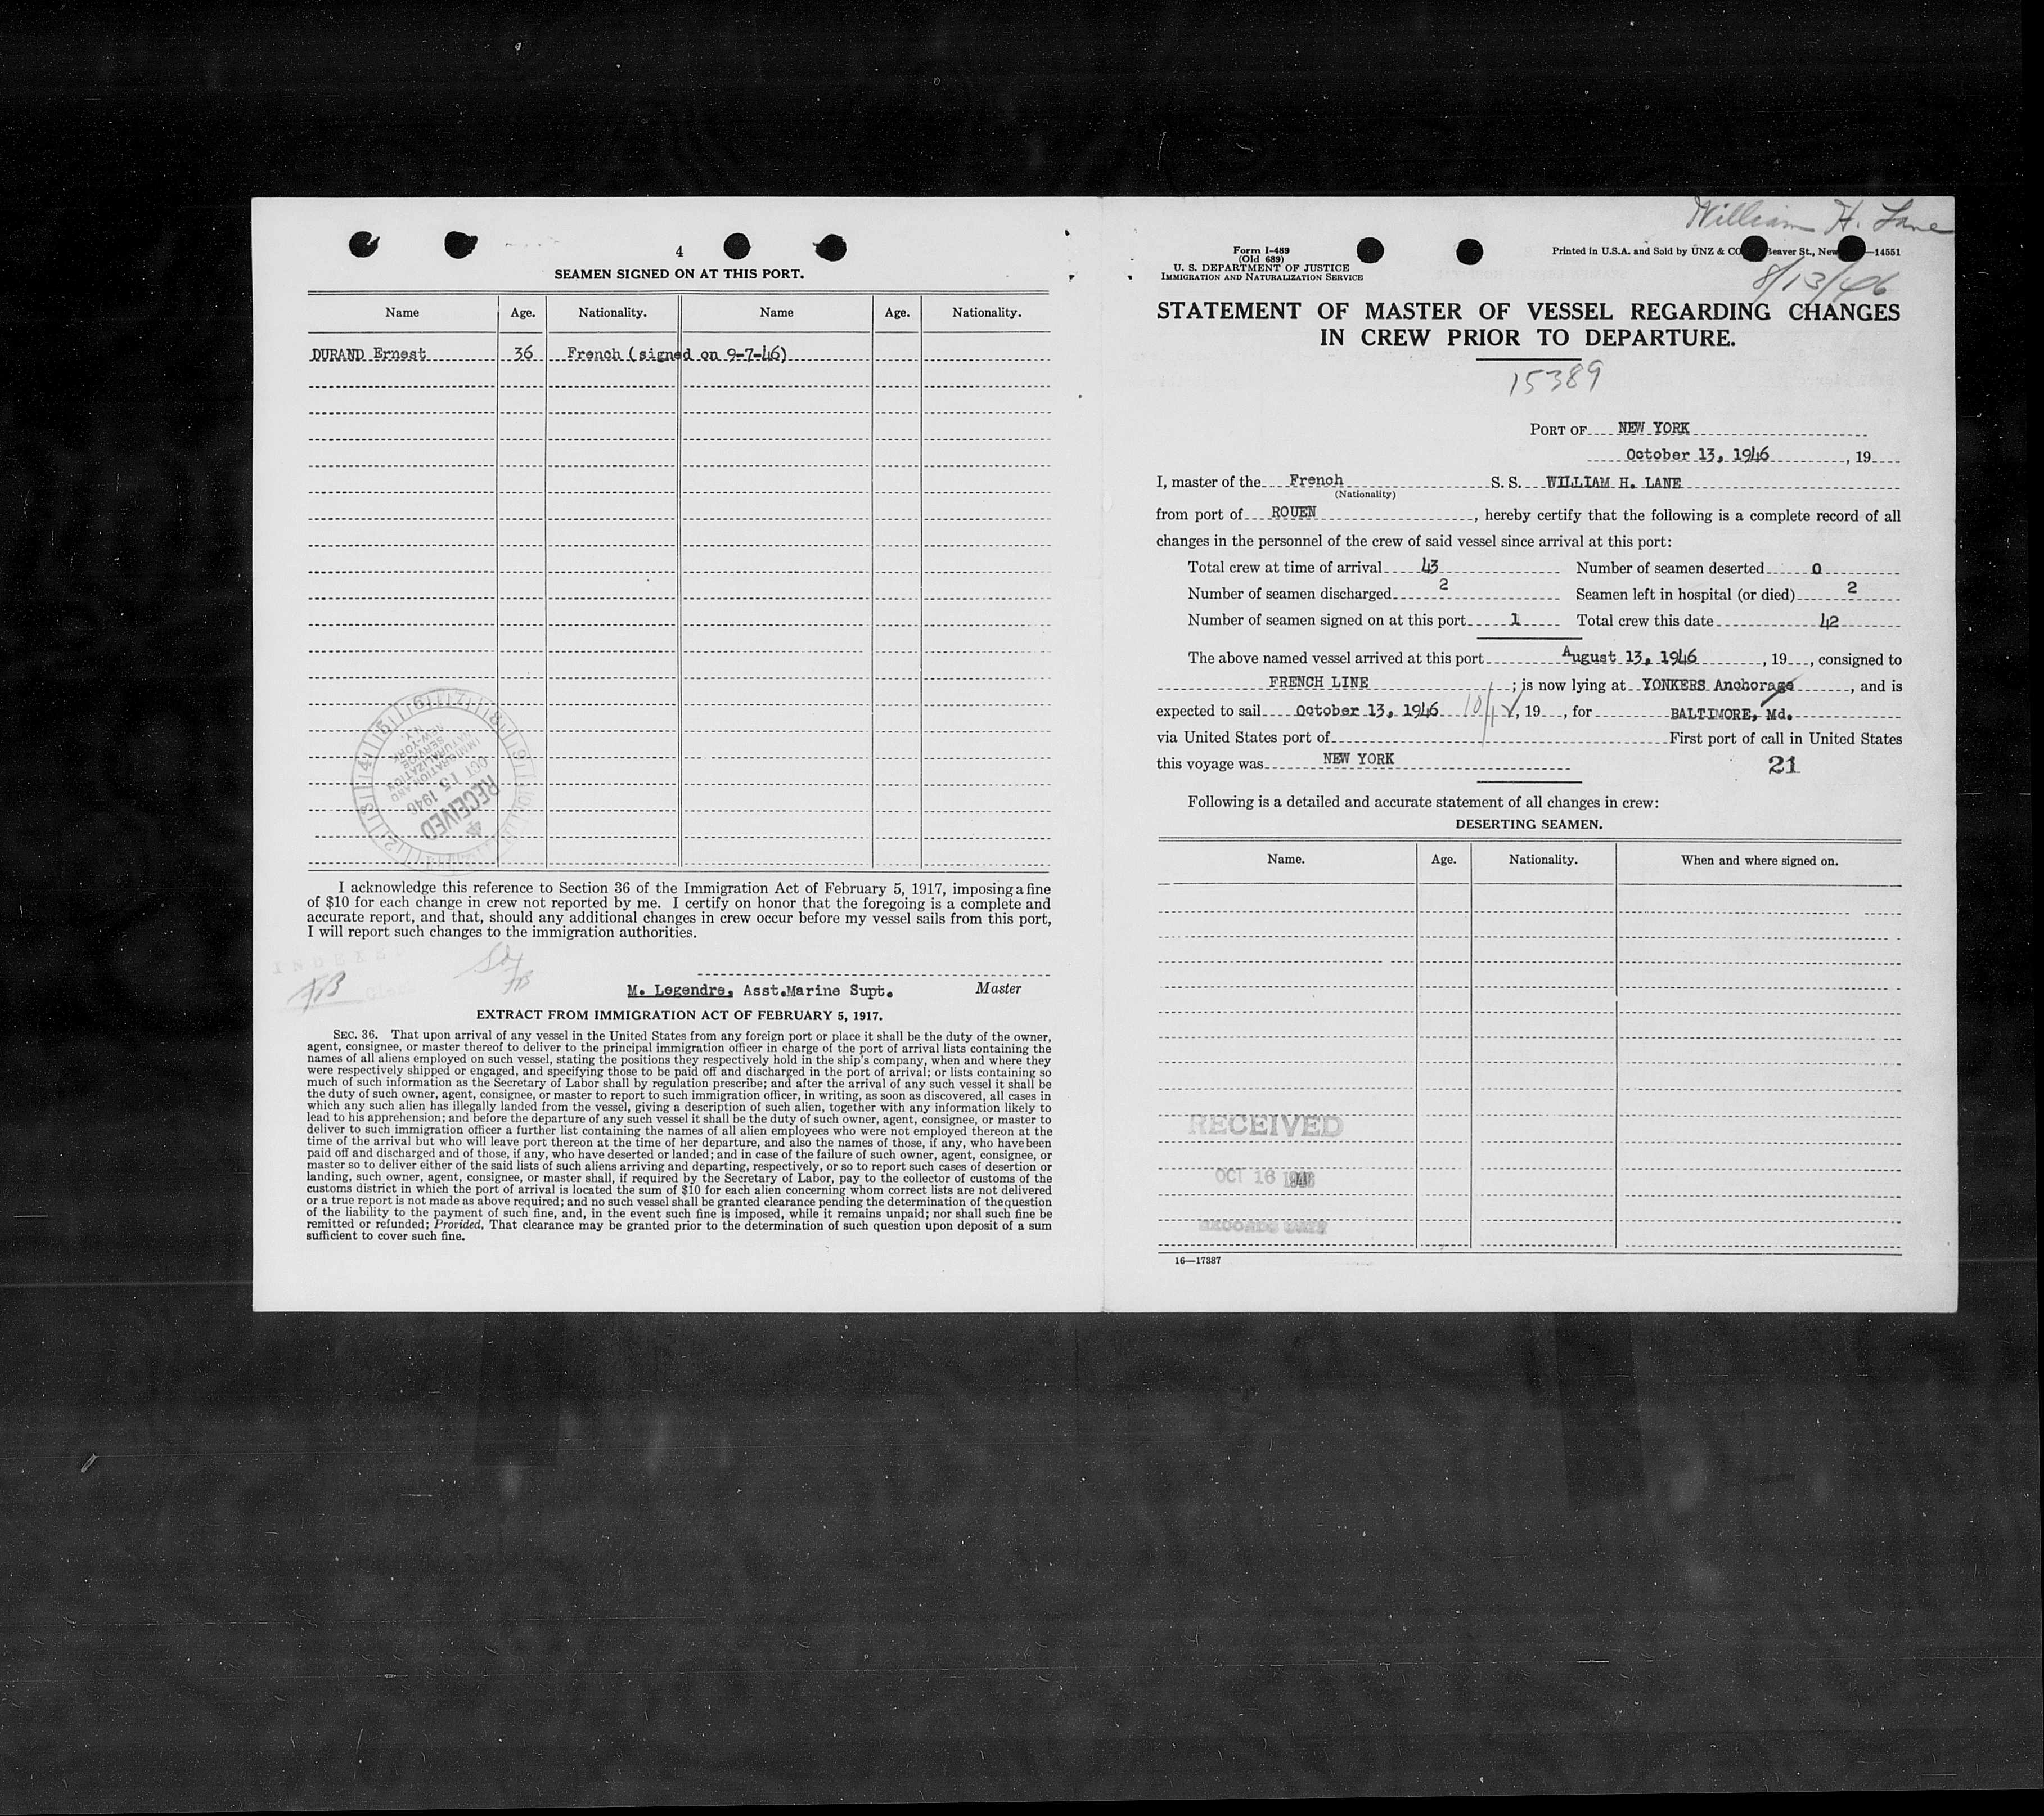 4
SEAMEN SIGNED ON AT THIS PORT.
Name Age. Nationality. Name Age. Nationality.
DURAND Ernest 36 French (signed on 9-7-46)
IMMIGRATION AND
NATURALIZATION
SERVICE
NEW-YORK
N.Y.
OCT 15 1946
RECEIVED
I acknowledge this reference to Section 36 of the Immigration Act of February 5, 1917, imposing a fine
of $10 for each change in crew not reported by me. I certify on honor that the foregoing is a complete and
accurate report, and that, should any additional changes in crew occur before my vessel sails from this port,
I will report such changes to the immigration authorities.
INDEXED
M. Legendre, Asst.Marine Supt. Master
EXTRACT FROM IMMIGRATION ACT OF FEBRUARY 5, 1917.
SEC. 36. That upon arrival of any vessel in the United States from any foreign port or place it shall be the duty of the owner,
agent, consignee, or master thereof to deliver to the principal immigration officer in charge of the port of arrival lists containing the
names of all aliens employed on such vessel, stating the positions they respectively hold in the ship's company, when and where they
were respectively shipped or engaged, and specifying those to be paid off and discharged in the port of arrival; or lists containing so
much of such information as the Secretary of Labor shall by regulation prescribe; and after the arrival of any such vessel it shall be
the duty of such owner, agent, consignee, or master to report to such immigration officer, in writing, as soon as discovered, all cases in
which any such alien has illegally landed from the vessel, giving a description of such alien, together with any information likely to
lead to his apprehension; and before the departure of any such vessel it shall be the duty of such owner, agent, consignee, or master to
deliver to such immigration officer a further list containing the names of all alien employees who were not employed thereon at the
time of the arrival but who will leave port thereon at the time of her departure, and also the names of those, if any, who have been
paid off and discharged and of those, if any, who have deserted or landed; and in case of the failure of such owner, agent, consignee, or
master so to deliver either of the said lists of such aliens arriving and departing, respectively, or so to report such cases of desertion or
landing, such owner, agent, consignee, or master shall, if required by the Secretary of Labor, pay to the collector of customs of the
customs district in which the port of arrival is located the sum of $10 for each alien concerning whom correct lists are not delivered
or a true report is not made as above required; and no such vessel shall be granted clearance pending the determination of the question
of the liability to the payment of such fine, and, in the event such fine is imposed, while it remains unpaid; nor shall such fine be
remitted or refunded; Provided, That clearance may be granted prior to the determination of such question upon deposit of a sum
sufficient to cover such fine.
William H. Lane
Form I-489
(Old 689)
U. S. DEPARTMENT OF JUSTICE
IMMIGRATION AND NATURALIZATION SERVICE
Printed in U.S.A. and Sold by UNZ & CO Beaver St., New —14551
8/13/46
STATEMENT OF MASTER OF VESSEL REGARDING CHANGES
IN CREW PRIOR TO DEPARTURE.
15389
PORT OF NEW YORK
October 13, 1946, 19
I, master of the French S. S. WILLIAM H. LANE
(Nationality)
from port of ROUEN, hereby certify that the following is a complete record of all
changes in the personnel of the crew of said vessel since arrival at this port:
Total crew at time of arrival 43 Number of seamen deserted 0
Number of seamen discharged 2 Seamen left in hospital (or died) 2
Number of seamen signed on at this port 1 Total crew this date 42
The above named vessel arrived at this port August 13, 1946, 19, consigned to
FRENCH LINE; is now lying at YONKERS Anchorage, and is
expected to sail October 13, 1946, 19, for BALTIMORE, Md.
via United States port of First port of call in United States
this voyage was NEW YORK 21
Following is a detailed and accurate statement of all changes in crew:
DESERTING SEAMEN.
Name. Age. Nationality. When and where signed on.
RECEIVED
OCT 16 1946
RECORDS UNIT
16—17387